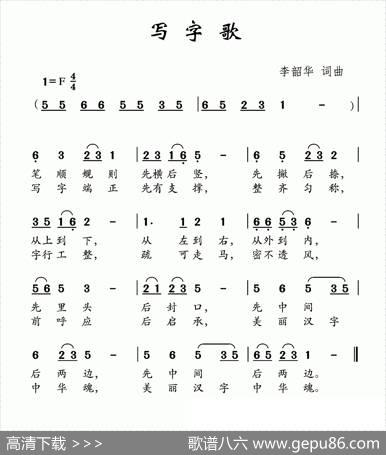 写 字 歌
1=F 4/4
李韶华 词曲
(5 5 6 6 5 5 3 5 | 6 5 2 3 1 - )
6 3 2 3 1 | 2 1 1 6 5 - | 6 5 2 3 5 - |
笔 顺 规 则 先横后 竖, 先 撇后 捺,
写 字 端 正 先有支 撑, 整 齐匀 称,
3 5 1 6 2 - | 1· 1 2 2 - | 6 6 5 3 5 - |
从上到 下, 从 左到 右, 从外到 内,
字行工 整, 疏 可走 马, 密不透 风,
5 6 5 3 - | 2 1 2 3 - | 5 6 5 3 5 |
先 里头 后 封口, 先 中 间
前 呼应 后 启承, 美 丽 汉字
6 2 3 5 - | 5 6 5 3 5 | 6 2 3 5 - ‖
后 两边, 先 中 间 后 两边。
中 华魂, 美 丽 汉字 中 华魂。
高清下载 >>>
歌谱八六 www.gepu86.com